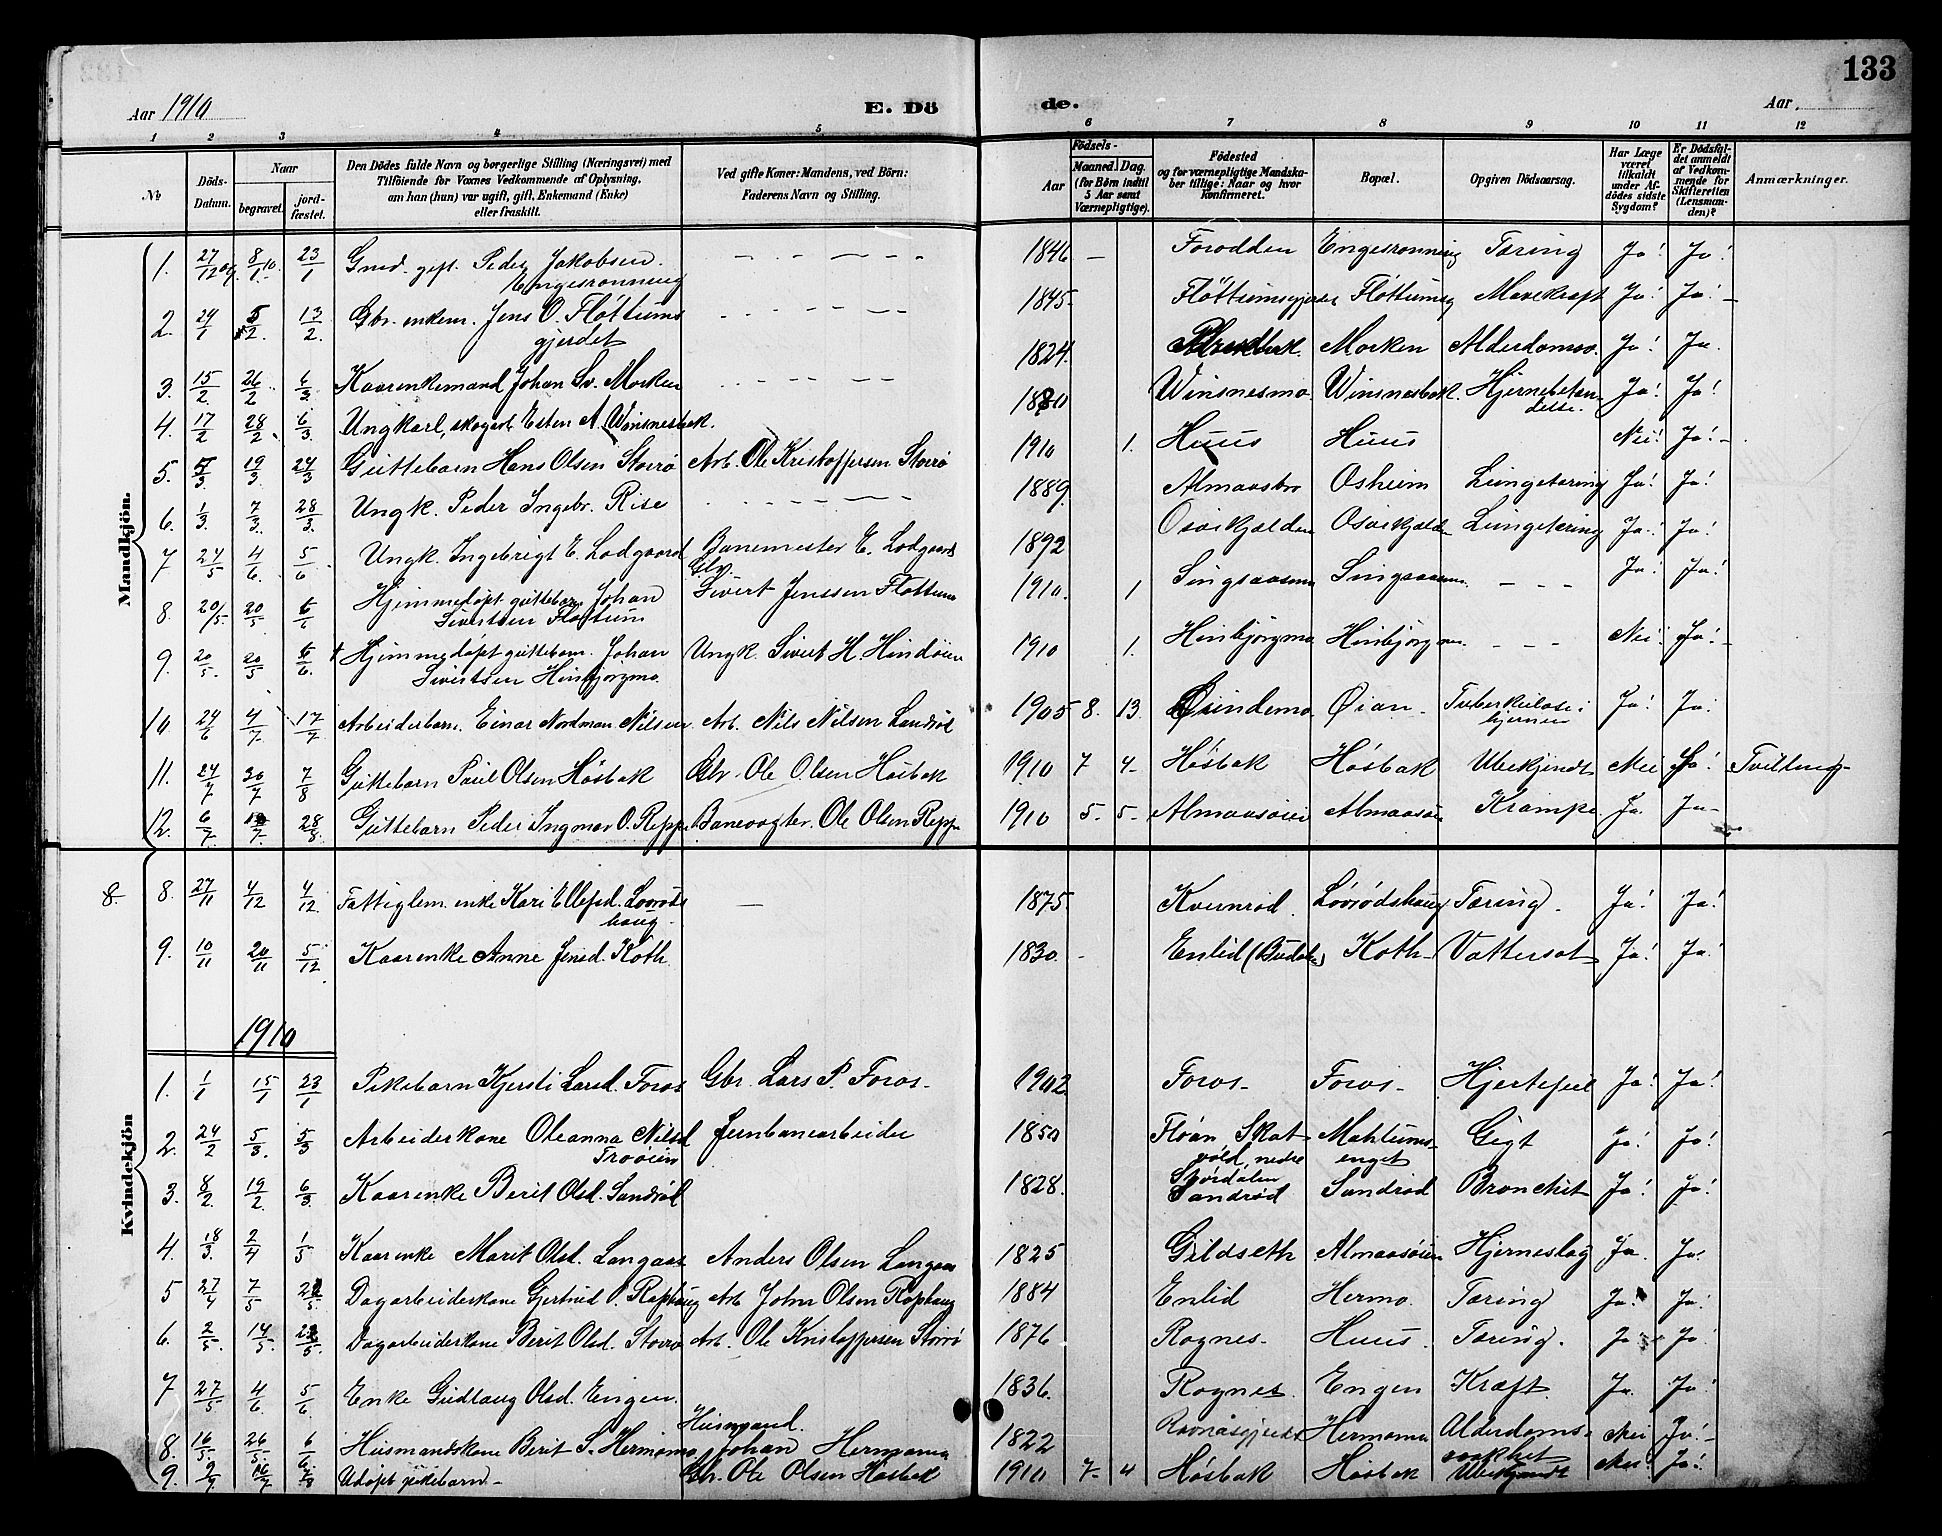 133
Aar 1910
E. Dö
de.
Aar
1 2 3 4 5 6 7 8 9 10 11 12
№
Döds-Datum.
Naar
begravet. jord-fæstet.
Den Dödes fulde Navn og borgerlige Stilling (Næringsvei) med
Tilföiende for Voxnes Vedkommende af Oplysning,
om han (hun) var ugift, gift, Enkemand (Enke)
eller fraskilt.
Ved gifte Koner: Mandens, ved Börn:
Faderens Navn og Stilling.
Födsels-
Aar
Maaned. Dag.
(for Börn indtil
5 Aar samt
Værnepligtige).
Födested
og for værnepligtige Mandska-
ber tillige: Naar og hvor
konfirmeret.
Bopæl.
Opgiven Dödsaarsag.
Har Læge
været
tilkaldt
under Af-
dödes sidste
Sygdom?
Er Dödsfal-
det anmeldt
af Vedkom-
mende for
Skifteretten
(Lensman-
den)?
Anmærkninger.
Mandkjön.
1. 27/12 09. 8/1 10. 23/1 Gmd. gift. Peder Jakobsen Engesrønning 1846 — Forodden Engesrønning Tæring Ja! Ja!
2. 24/1 5/2 13/2 Gbr. enkem. Jens O. Fløttums gjerdet 1845 Fløttumsgjerdet Fløttumsg Mavekræft Ja! Ja!
3. 15/2 26/2 6/3 Kaarenkemand Johan Sv. Morken 1824. Morken Alderdomssv. Ja! Ja.
4. 17/2 28/2 6/3 Ungkarl, skogarb. Esten A. Winsnesbak. 1880 Winsnesmo Winsnesbak. Hjernebetændelse. Ja! Ja!
5. 5/3 19/3 24/3 Guttebarn Hans Olsen Storrø Arb. Ole Kristoffersen Storrø 1910 1. Huus Huus Nei! Ja!
6. 1/3 7/3 28/3 Ungk. Peder Ingebr. Rise 1889. Almaasbro Osheim Lungetæring Ja! Ja!
7 24/5 4/6 5/6 Ungk. Ingebrigt E. Lodgaard Banemester E. Lodgaard 1892 Osvikjælden Osvikjælden Lungetæring Ja! Ja!
8. 20/5 20/5 6/6 Hjemmedøpt guttebarn Johan Sivertsen Fløttum Gbr. Sivert Jenssen Fløttum 1910. 1 Singsaasmo Singsaasmo. — — — Ja! Ja!
9. 20/5 20/5 6/6 † Hjemmedøpt guttebarn. Johan Sivertsen Hinbjørgmo. Ungk. Sivert H. Hindøien 1910 1. Hinbjørgmo Hinbjørgmo. — — — Nei! Ja!
10. 24/6 4/7 17/7 Arbeiderbarn. Einar Nordman Nilsen Arb. Nils Nilsen Landrøl 1905 8. 13. Øian. Tuberkulose i hjernen Ja! Ja!
11. 24/7 20/7 7/8 Guttebarn Paul Olsen Høsbak Gbr. Ole Olsen Høsbak 1910 7 4. Høsbak Høsbak Ubekjendt Nei Ja! Tvilling
12. 6/7 /7 28/8 Guttebarn Peder Ingmar O. Reppe Banevogter. Ole Olsen Reppe 1910 5. 5. Almaasøien Almaasøi Krampe Ja. Ja
8. 8. 27/11 4/12 4/12 Fattiglem. enke Kari Ellefsd. Lovrødshaug — 1875. Kvernrød. Lovrødshaug Tæring. Ja! Ja!
9. 10/11 20/11 5/12 Kaarenke Anne Jensd. Koth 1830. Enlid (Budalen) Koth Vattersot Ja! Ja!
1910
Kvindekjön
1. 1/1 15/1 23/1 Pikebarn Kjersti Larsd. Foros Gbr. Lars P. Foros 1902. Foros Foros Hjertefeil Ja! Ja!
2. 24/2 5/3. 5/3 Arbeiderkone Oleanna Nilsd Trøøien Jernbanearbeider 1850 Fløan, Skatvold, nedre Stjørdalen Mahlumsenget Gigt Ja! Ja!
3. 8/2 19/2. 6/3 Kaarenke Berit Olsd. Sandrød 1828. Sandrød Sandrød Bronchit Ja! Ja!
4. 18/3. 2/4 1/5 Kaarenke Marit Olsd. Langaas Anders Olsen Langaas 1825 Gildseth Almaasøien Hjerneslag Ja. Ja.
5 27/4 7/5 /5. Dagarbeiderkone Gjertrud O. Raphaug Arb. John Olsen Raphaug 1884 Enlid Hermo. Tæring Ja! Ja!
6. 2/5. 14/5. /5. Dagarbeiderkone Berit Olsd. Storrø Arb. Ole Kristoffersen Storrø 1876 Rognes. Huus. Tæring. Ja Ja!
7 27/5 4/6 5/6 Enke Gudlaug Olsd. Engen. 1836. Rognes. Engen Kræft. Ja. Ja!
8. 16/5. 26/5. 6/6 Husmandskone Berit S. Hermomo Husmand. Johan Hermomo 1822 Hermomo Alderdomssvakhet Nei Ja!
9. 9/7 /7 7/8 Udøpt pikebarn Gbr. Ole Olsen Høsbak 1910 7 4 Høsbak Høsbak Ubekjendt Nei! Ja!